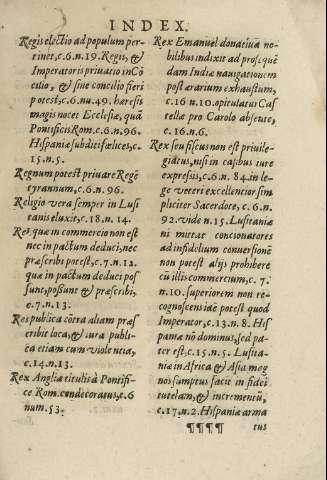 INDEX.
Regis electio ad populum per-
tinet, c.6.n.19. Regis, &
Imperatoris priuatio in Cō
cilio, & sine concilio fieri
potest, c.6.nu.49. hæresis
magis nocet Ecclesiæ, quā
Pontificis Rom. c.6.n.96.
Hispaniæ subditi fœlices, c.
15.n.5.
Regnum potest priuare Regē
tyrannum, c.6.n.96.
Religio vera semper in Lusi
tanis eluxit, c.18.n.14.
Res quæ in commercio non est
nec in pactum deduci, nec
præscribi potest, c.7.n.12.
quæ in pactum deduci pos
sunt, possunt & præscribi,
c.7.n.13.
Respublica cōtra aliam præs
cribit loca, & iura publi-
ca etiam cum violētia,
c.14.n.13.
Rex Angliæ titulis à Pontifi-
ce Rom. condecoratus, c.6
num.53.
Rex Emanuel donatiuā no-
bilibus indixit ad prosequē
dam Indiæ nauigationem
post ærarium exhaustum,
c.16 n.10. opitulatur Cas
tellæ pro Carolo absente,
c.16.n.6.
Rex seu fiscus non est priuile-
giatus, nisi in casibus iure
expressis, c.6 n.84. in le-
ge veteri excellentior sim
pliciter Sacerdote, c.6.n.
92. vide n.15. Lusitaniæ
ni mittat concionatores
ad infidelium conuersionē
non potest alijs prohibere
cū illis commercium, c.7.
n.10. superiorem non re-
cognoscens idē potest quod
Imperator, c.13.n.8. His
paniæ nō dominus, sed pa-
ter est, c.15.n.5. Lusita-
niæ in Africa & Asia mag
nos sumptus facit in fidei
tutelam, & incrementū,
c.17.n.2. Hispaniæ arma
¶¶¶¶ tus